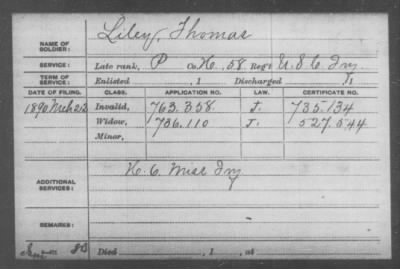 NAME OF SOLDIER: Liley, Thomas
SERVICE: Late rank, P Co. H, 58 Reg't U.S.C. Inf.
TERM OF SERVICE: Enlisted , 1 Discharged , 1
DATE OF FILING. CLASS. APPLICATION NO. LAW. CERTIFICATE NO.
1890 Mch 22 Invalid, 763.358 J. 735.134
Widow, 736.110 J. 527.544
Minor,
ADDITIONAL SERVICES: H. 6. Inf
REMARKS:
Died , 1 , at